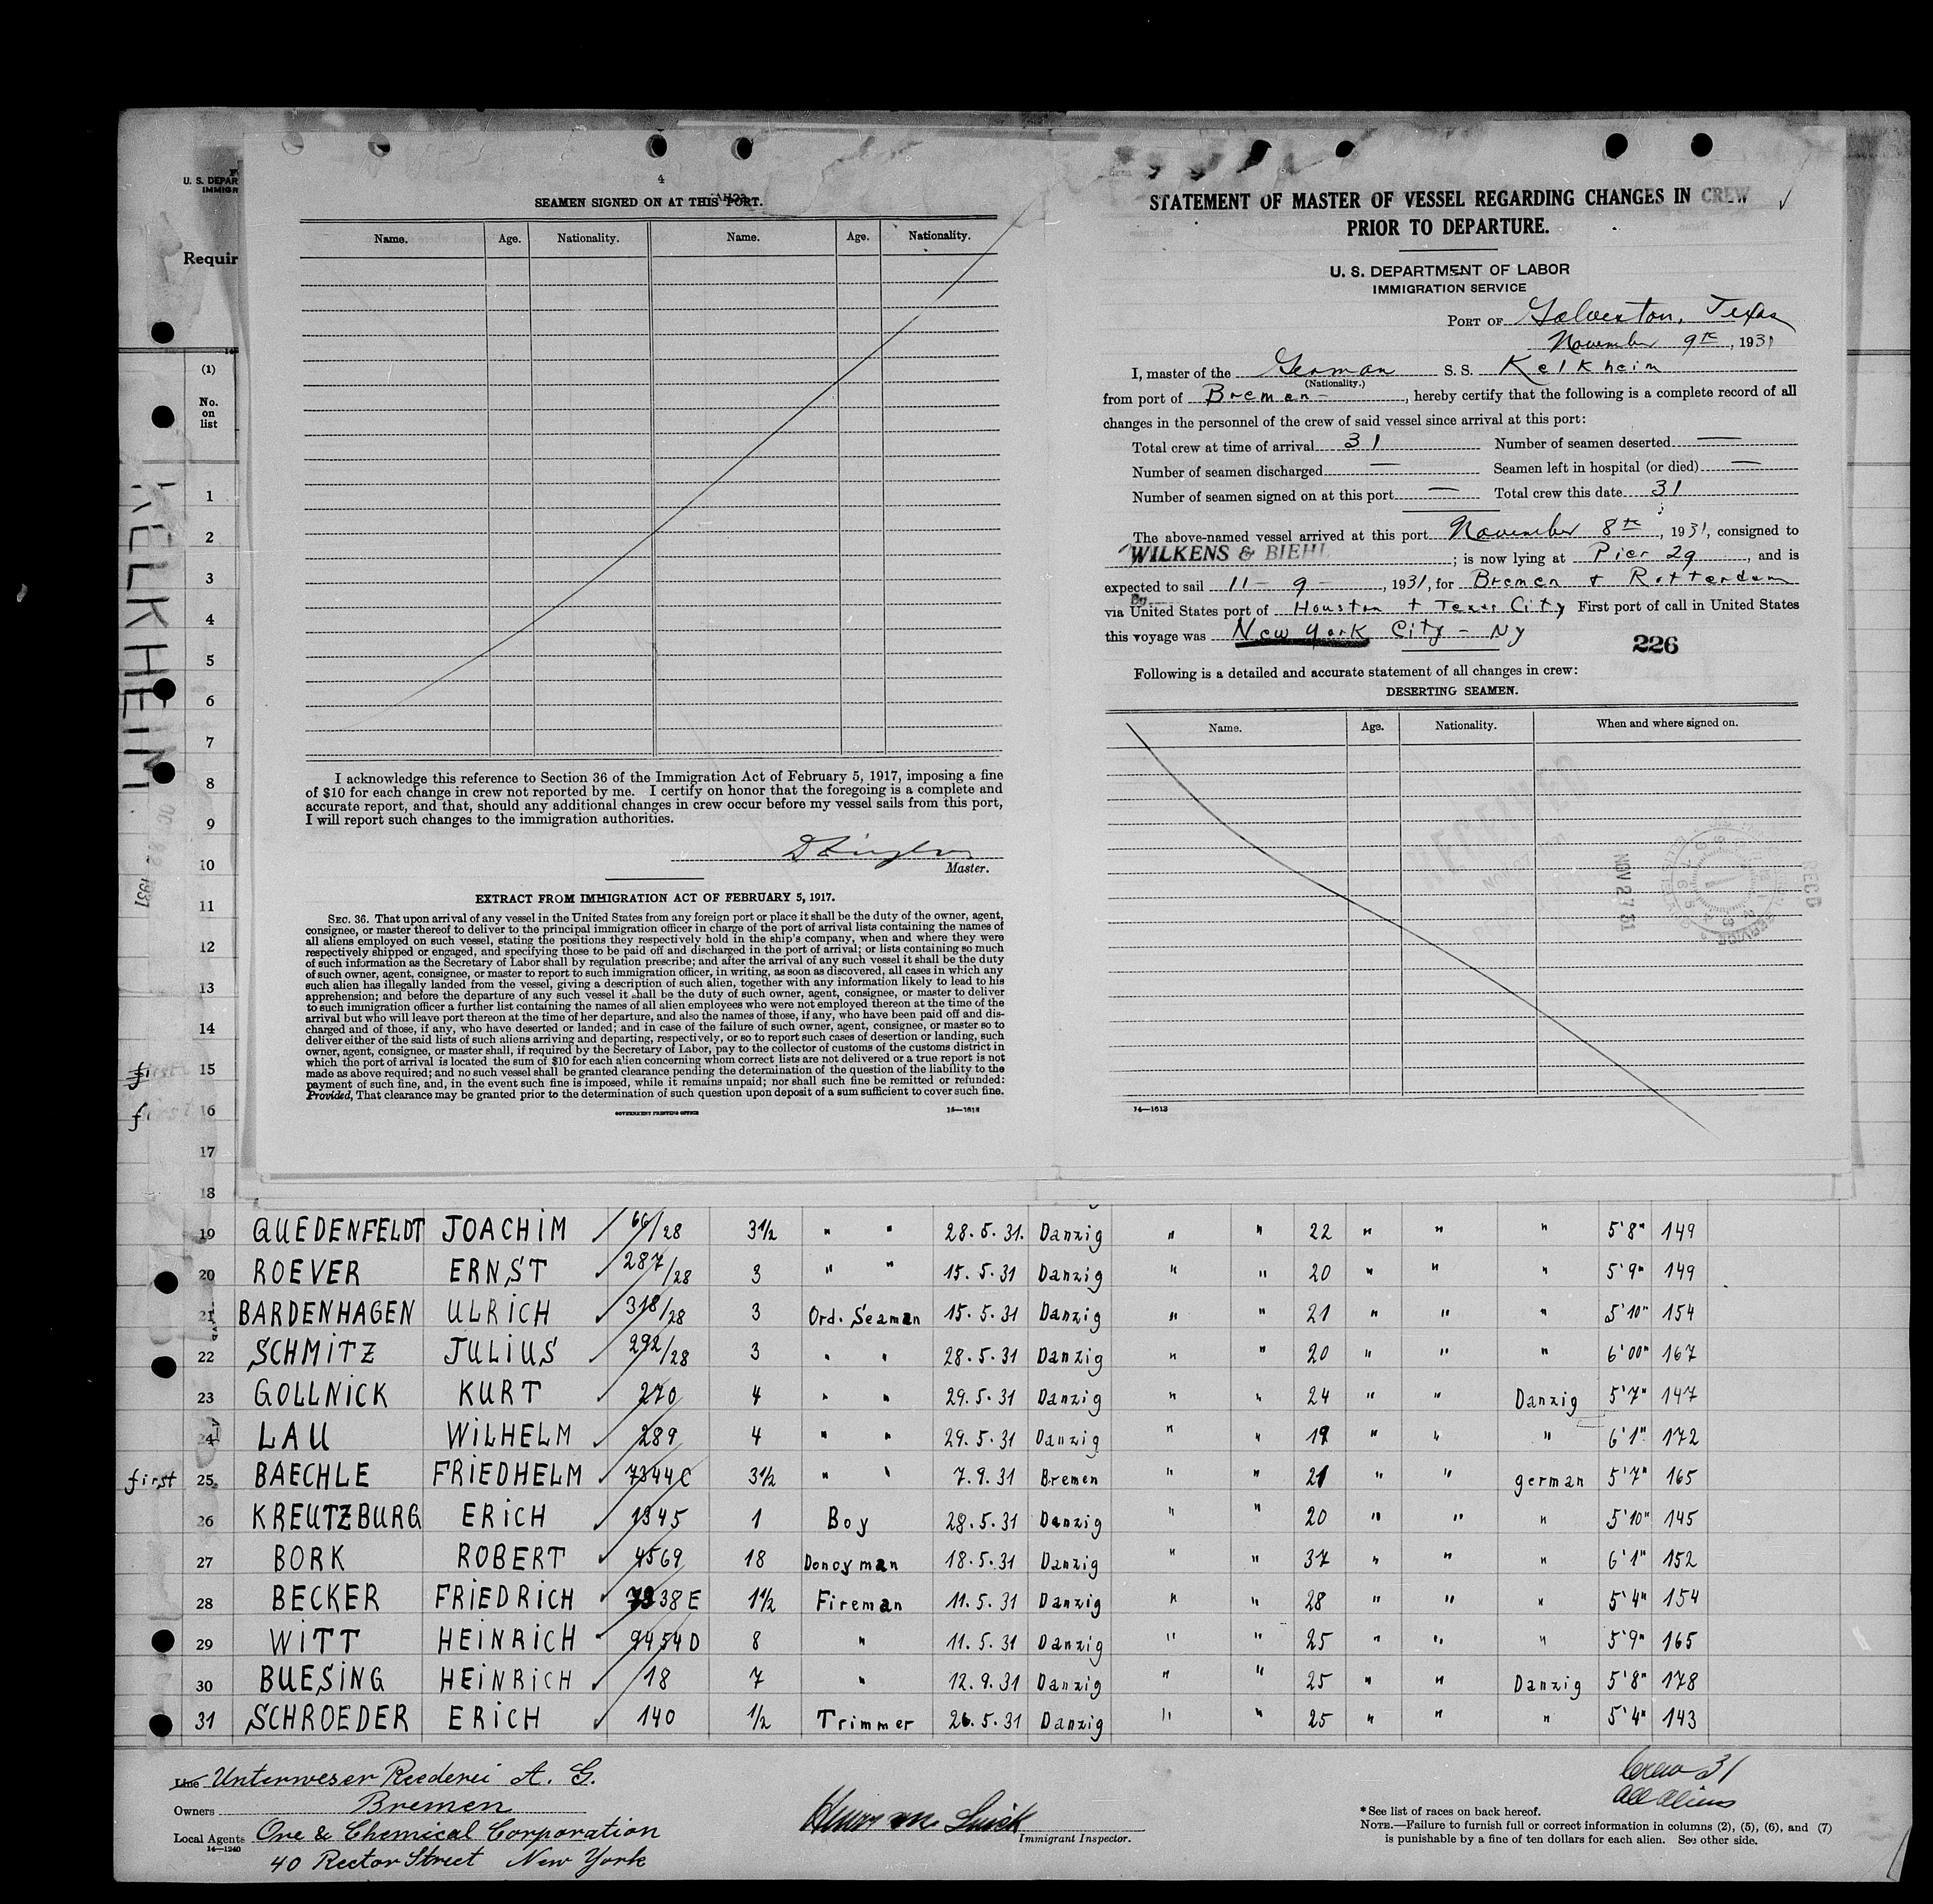 U. S. DEPAR
IMMIGR
Requir
(1)
No.
on
list
KELKHEIM
1
2
3
4
5
6
7
8
9
10
11
12
13
14
15
16
17
18
4
SEAMEN SIGNED ON AT THIS PORT.
Name. Age. Nationality. Name. Age. Nationality.
I acknowledge this reference to Section 36 of the Immigration Act of February 5, 1917, imposing a fine
of $10 for each change in crew not reported by me. I certify on honor that the foregoing is a complete and
accurate report, and that, should any additional changes in crew occur before my vessel sails from this port,
I will report such changes to the immigration authorities.
Master.
EXTRACT FROM IMMIGRATION ACT OF FEBRUARY 5, 1917.
SEC. 36. That upon arrival of any vessel in the United States from any foreign port or place it shall be the duty of the owner, agent,
consignee, or master thereof to deliver to the principal immigration officer in charge of the port of arrival lists containing the names of
all aliens employed on such vessel, stating the positions they respectively hold in the ship's company, when and where they were
respectively shipped or engaged, and specifying those to be paid off and discharged in the port of arrival; or lists containing so much
of such information as the Secretary of Labor shall by regulation prescribe; and after the arrival of any such vessel it shall be the duty
of such owner, agent, consignee, or master to report to such immigration officer, in writing, as soon as discovered, all cases in which any
such alien has illegally landed from the vessel, giving a description of such alien, together with any information likely to lead to his
apprehension; and before the departure of any such vessel it shall be the duty of such owner, agent, consignee, or master to deliver
to such immigration officer a further list containing the names of all alien employees who were not employed thereon at the time of the
arrival but who will leave port thereon at the time of her departure, and also the names of those, if any, who have been paid off and dis-
charged and of those, if any, who have deserted or landed; and in case of the failure of such owner, agent, consignee, or master so to
deliver either of the said lists of such aliens arriving and departing, respectively, or so to report such cases of desertion or landing, such
owner, agent, consignee, or master shall, if required by the Secretary of Labor, pay to the collector of customs of the customs district in
which the port of arrival is located the sum of $10 for each alien concerning whom correct lists are not delivered or a true report is not
made as above required; and no such vessel shall be granted clearance pending the determination of the question of the liability to the
payment of such fine, and, in the event such fine is imposed, while it remains unpaid; nor shall such fine be remitted or refunded:
Provided, That clearance may be granted prior to the determination of such question upon deposit of a sum sufficient to cover such fine.
GOVERNMENT PRINTING OFFICE 14—1613
STATEMENT OF MASTER OF VESSEL REGARDING CHANGES IN CREW
PRIOR TO DEPARTURE.
U. S. DEPARTMENT OF LABOR
IMMIGRATION SERVICE
PORT OF Galveston, Texas
November 9th, 1931
I, master of the German S. S. Kelkheim
(Nationality.)
from port of Bremen, hereby certify that the following is a complete record of all
changes in the personnel of the crew of said vessel since arrival at this port:
Total crew at time of arrival 31 Number of seamen deserted —
Number of seamen discharged — Seamen left in hospital (or died) —
Number of seamen signed on at this port — Total crew this date 31
The above-named vessel arrived at this port November 8th, 1931, consigned to
WILKENS & BIEHL; is now lying at Pier 29, and is
expected to sail 11 - 9 -, 1931, for Bremen + Rotterdam
via United States port of Houston + Texas City First port of call in United States
this voyage was New York City - NY
226
Following is a detailed and accurate statement of all changes in crew:
DESERTING SEAMEN.
Name. Age. Nationality. When and where signed on.
RECEIVED
NOV 27 31
REC'D
14—1613
19 QUEDENFELDT JOACHIM 66/28 3½ " " 28.5.31. Danzig " " 22 " " " 5'8" 149
20 ROEVER ERNST 287/28 3 " " 15.5.31 Danzig " " 20 " " " 5'9" 149
21 BARDENHAGEN ULRICH 318/28 3 Ord. Seaman 15.5.31 Danzig " " 21 " " " 5'10" 154
22 SCHMITZ JULIUS 292/28 3 " " 28.5.31 Danzig " " 20 " " " 6'00" 167
23 GOLLNICK KURT 270 4 " " 29.5.31 Danzig " " 24 " " Danzig 5'7" 147
24 LAU WILHELM 289 4 " " 29.5.31 Danzig " " 19 " " " 6'1" 172
first 25 BAECHLE FRIEDHELM 7344C 3½ " " 7.9.31 Bremen " " 21 " " german 5'7" 165
26 KREUTZBURG ERICH 1345 1 Boy 28.5.31 Danzig " " 20 " " " 5'10" 145
27 BORK ROBERT 4569 18 Donoyman 18.5.31 Danzig " " 37 " " " 6'1" 152
28 BECKER FRIEDRICH 7338E 1½ Fireman 11.5.31 Danzig " " 28 " " " 5'4" 154
29 WITT HEINRICH 9454D 8 " 11.5.31 Danzig " " 25 " " " 5'9" 165
30 BUESING HEINRICH 18 7 " 12.9.31 Danzig " " 25 " " Danzig 5'8" 178
31 SCHROEDER ERICH 140 ½ Trimmer 26.5.31 Danzig " " 25 " " " 5'4" 143
Line Unterweser Reederei A. G.
Owners Bremen
Local Agents Ore & Chemical Corporation
14—1240
40 Rector Street New York
Immigrant Inspector.
Crew 31
All Aliens
*See list of races on back hereof.
NOTE.—Failure to furnish full or correct information in columns (2), (5), (6), and (7)
is punishable by a fine of ten dollars for each alien. See other side.